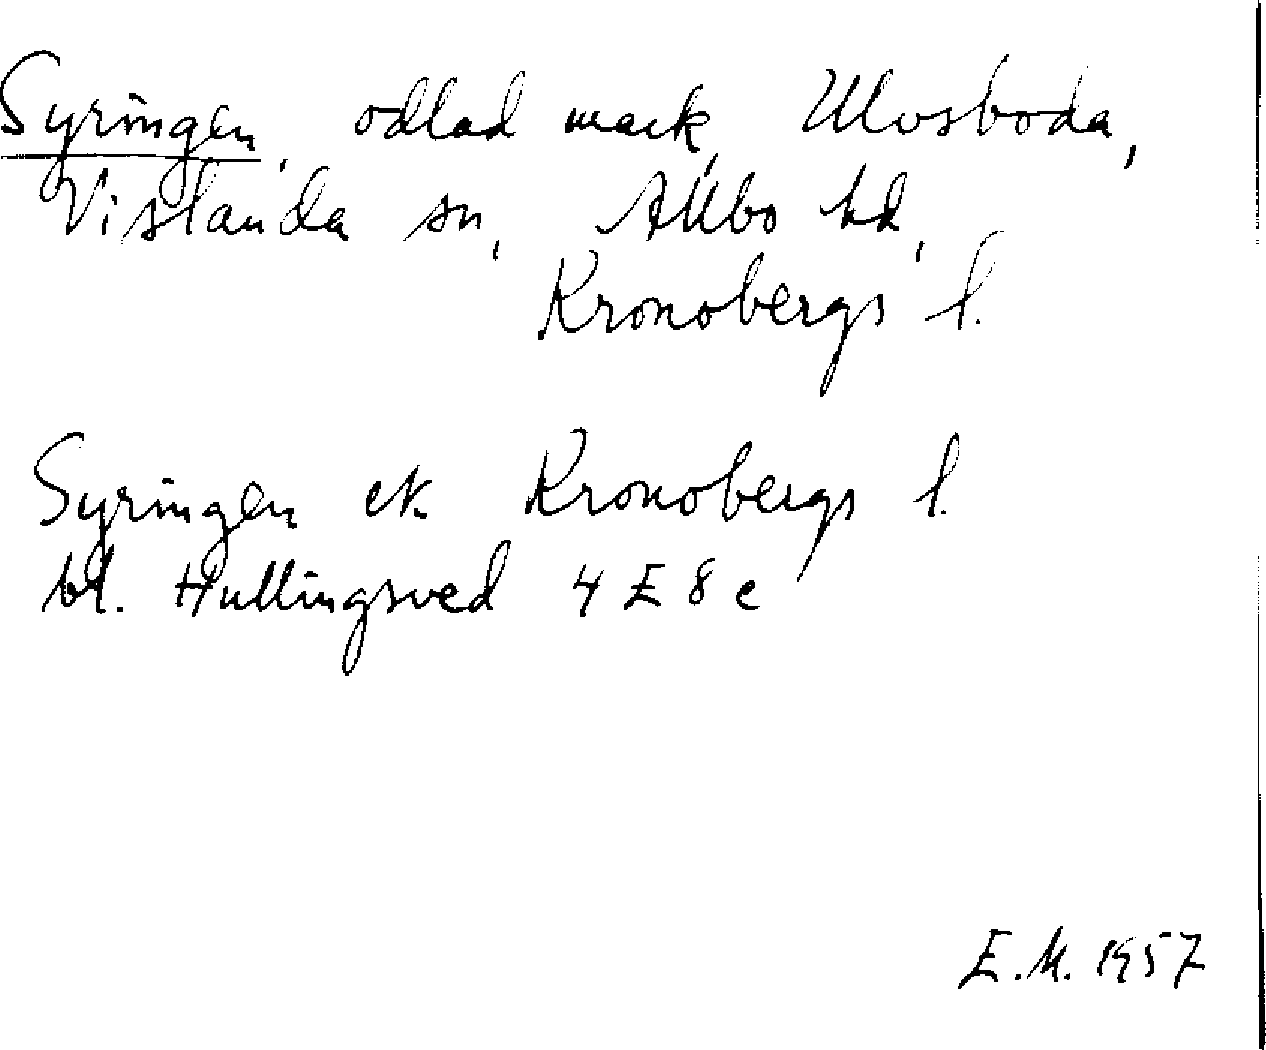 Syringen, odlad mark, Ulvsboda,
Vislanda sn, Allbo hd,
Kronobergs l.
Syringen ek. Kronobergs l.
bl. Hullingsved 4 E 8 e
E.M. 1957